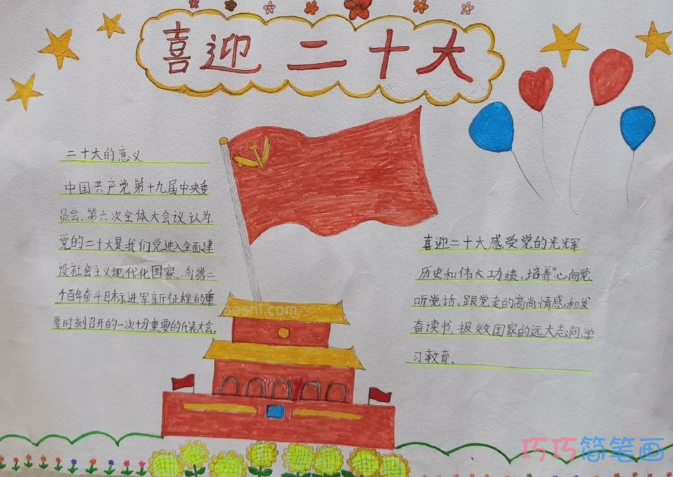 喜迎二十大
二十大的意义
中国共产党第十九届中央委
员会,第六次全体大会议认为
党的二十大是我们党进入全面建
设社会主义现代化国家,向第二
个百年奋斗目标进军新征程的重
要时刻召开的一次十分重要的代表大会.
喜迎二十大感受党的光辉
历史和伟大功绩,培养"心向党
听党话,跟党走的高尚情感和发
奋读书,报效国家的远大志向学
习教育.
aoshi.com
巧巧简笔画